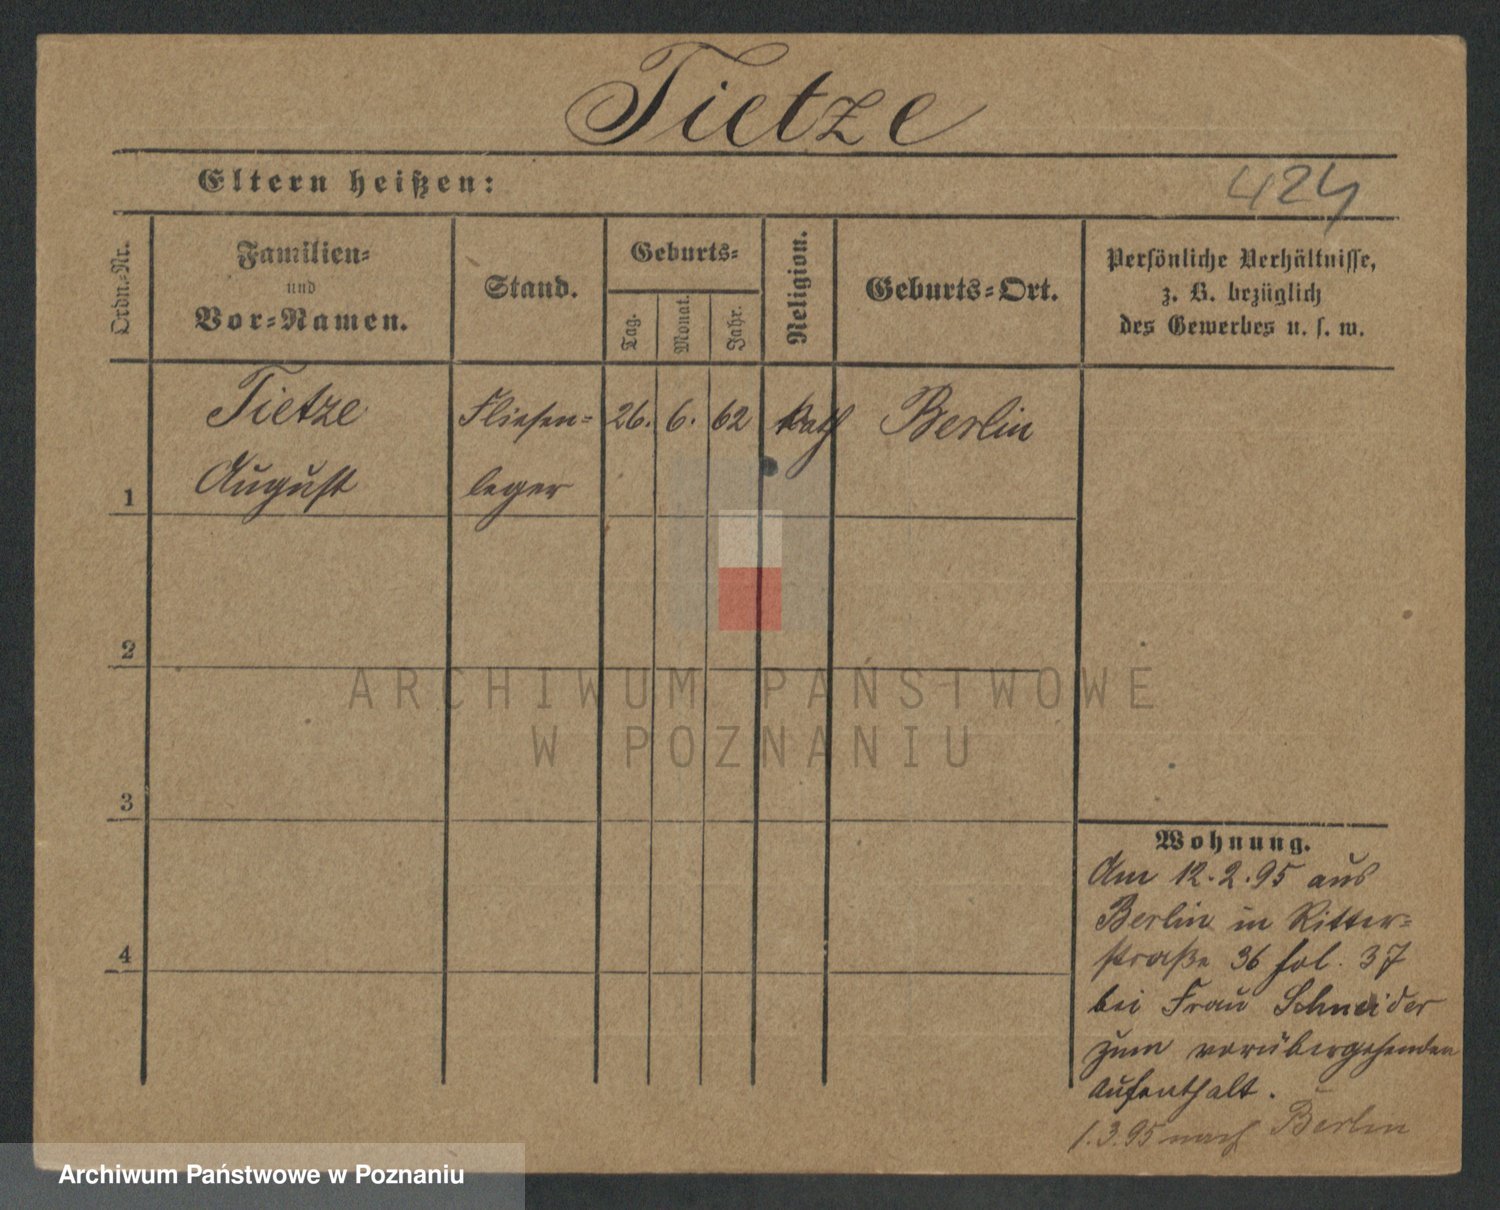 Tietze
Eltern heißen:
424
Ordn.-Nr.
Familien-
und
Vor-Namen.
Stand.
Geburts-
Tag.
Monat.
Jahr.
Religion.
Geburts-Ort.
Persönliche Verhältnisse,
z. B. bezüglich
des Gewerbes u. s. w.
Tietze Fliesen- 26. 6. 62 kath Berlin
1 August leger
2
3
4
ARCHIWUM PAŃSTWOWE
W POZNANIU
Wohnung.
Am 12.2.95 aus
Berlin in Ritter-
straße 36 fol. 37
bei Frau Schneider
zum vorübergehenden
Aufenthalt.
1.3.95 nach Berlin
Archiwum Państwowe w Poznaniu